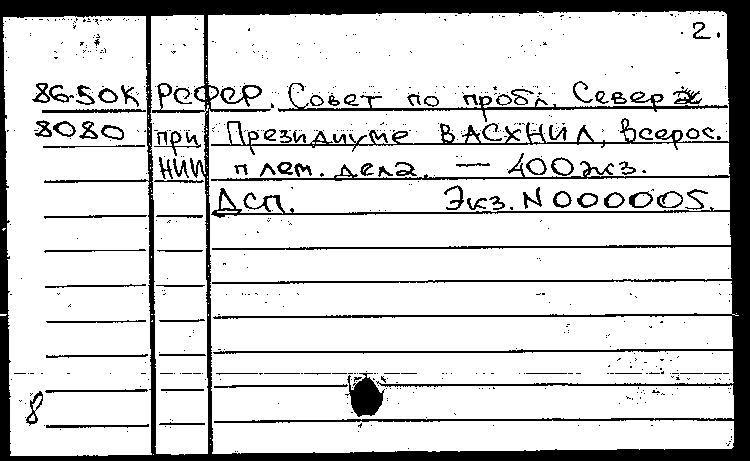 2.
86-50К РЕФЕР. Совет по пробл. Севера
8080 при Президиуме ВАСХНИЛ, Всерос.
НИИ плем. дела. — 400 экз.
ДСП. Экз. N 000005.
8